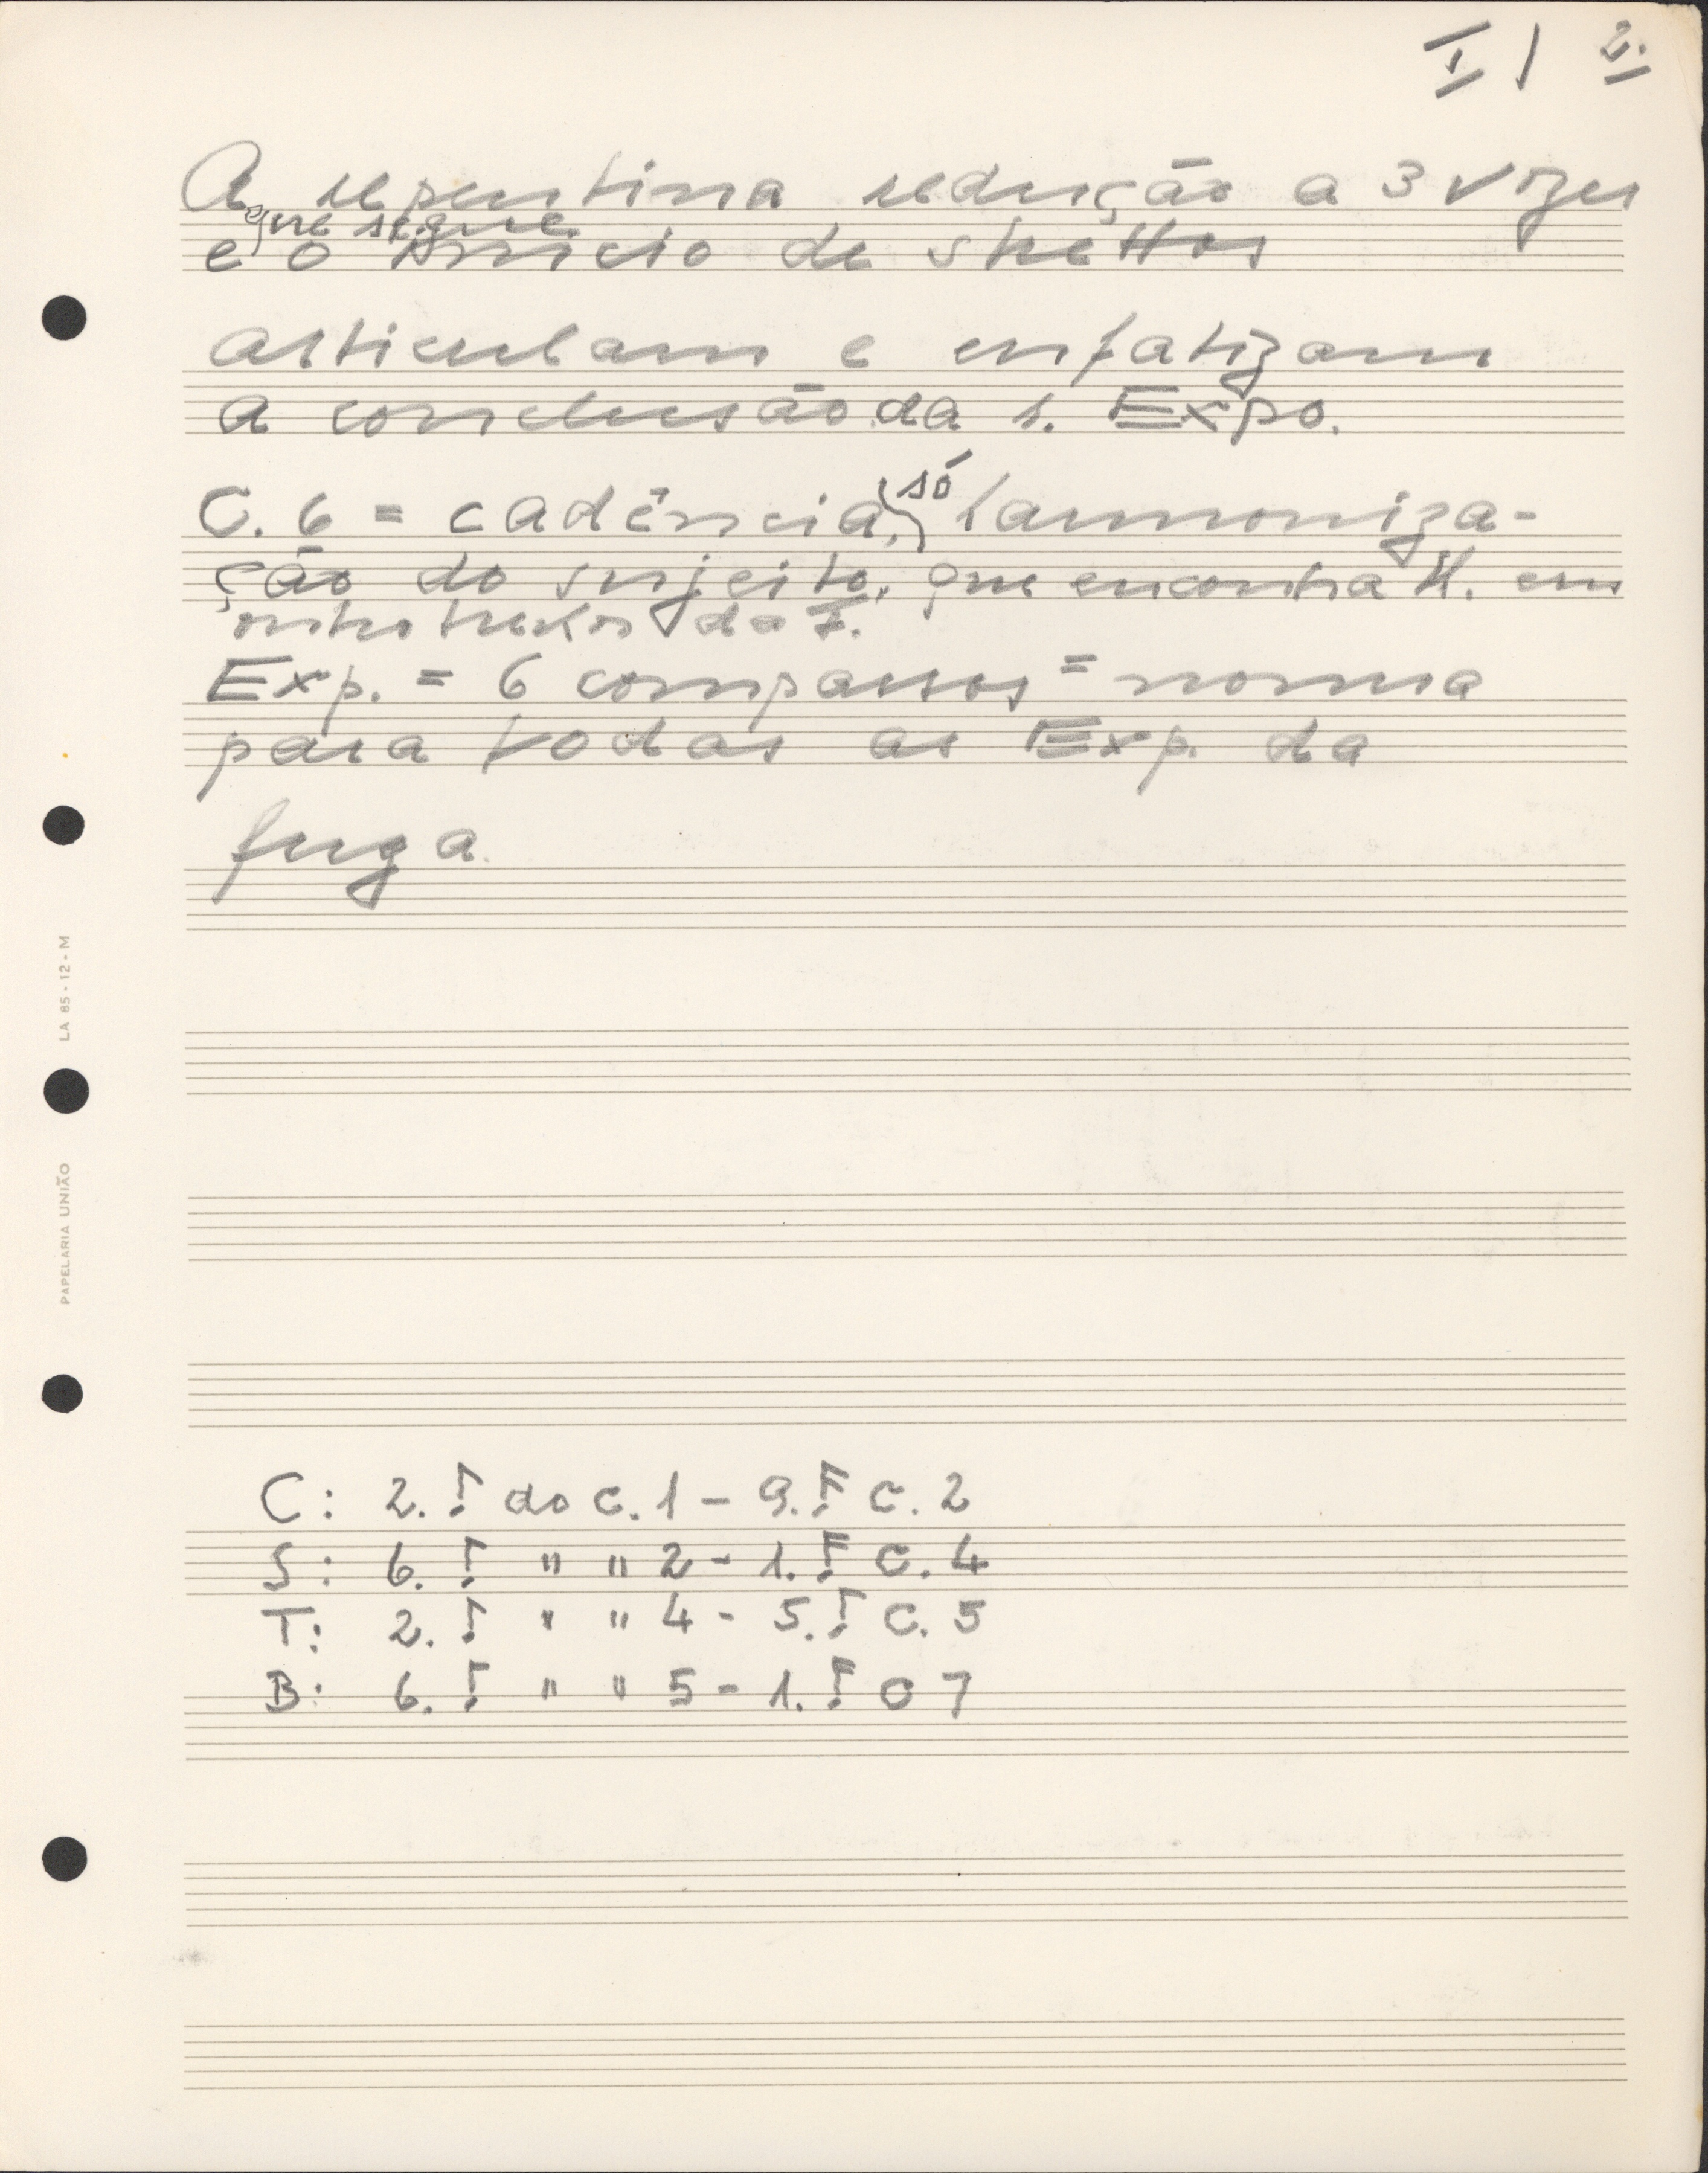 I / 2.
A repentina redução a 3 vozes
que segue
e o início de strettos
articulam e enfatizam
a conclusão da 1. Expo.
C. 6 = cadência, só harmoniza-
ção do sujeito, que encontra H. em
outros trechos da F.
Exp. = 6 compassos = norma
para todas as Exp. da
fuga.
LA 85 - 12 - M
PAPELARIA UNIÃO
C: 2. do c. 1 - 9. c. 2
S: 6. " " 2 - 1. c. 4
T: 2. " " 4 - 5. c. 5
B: 6. " " 5 - 1. c 7